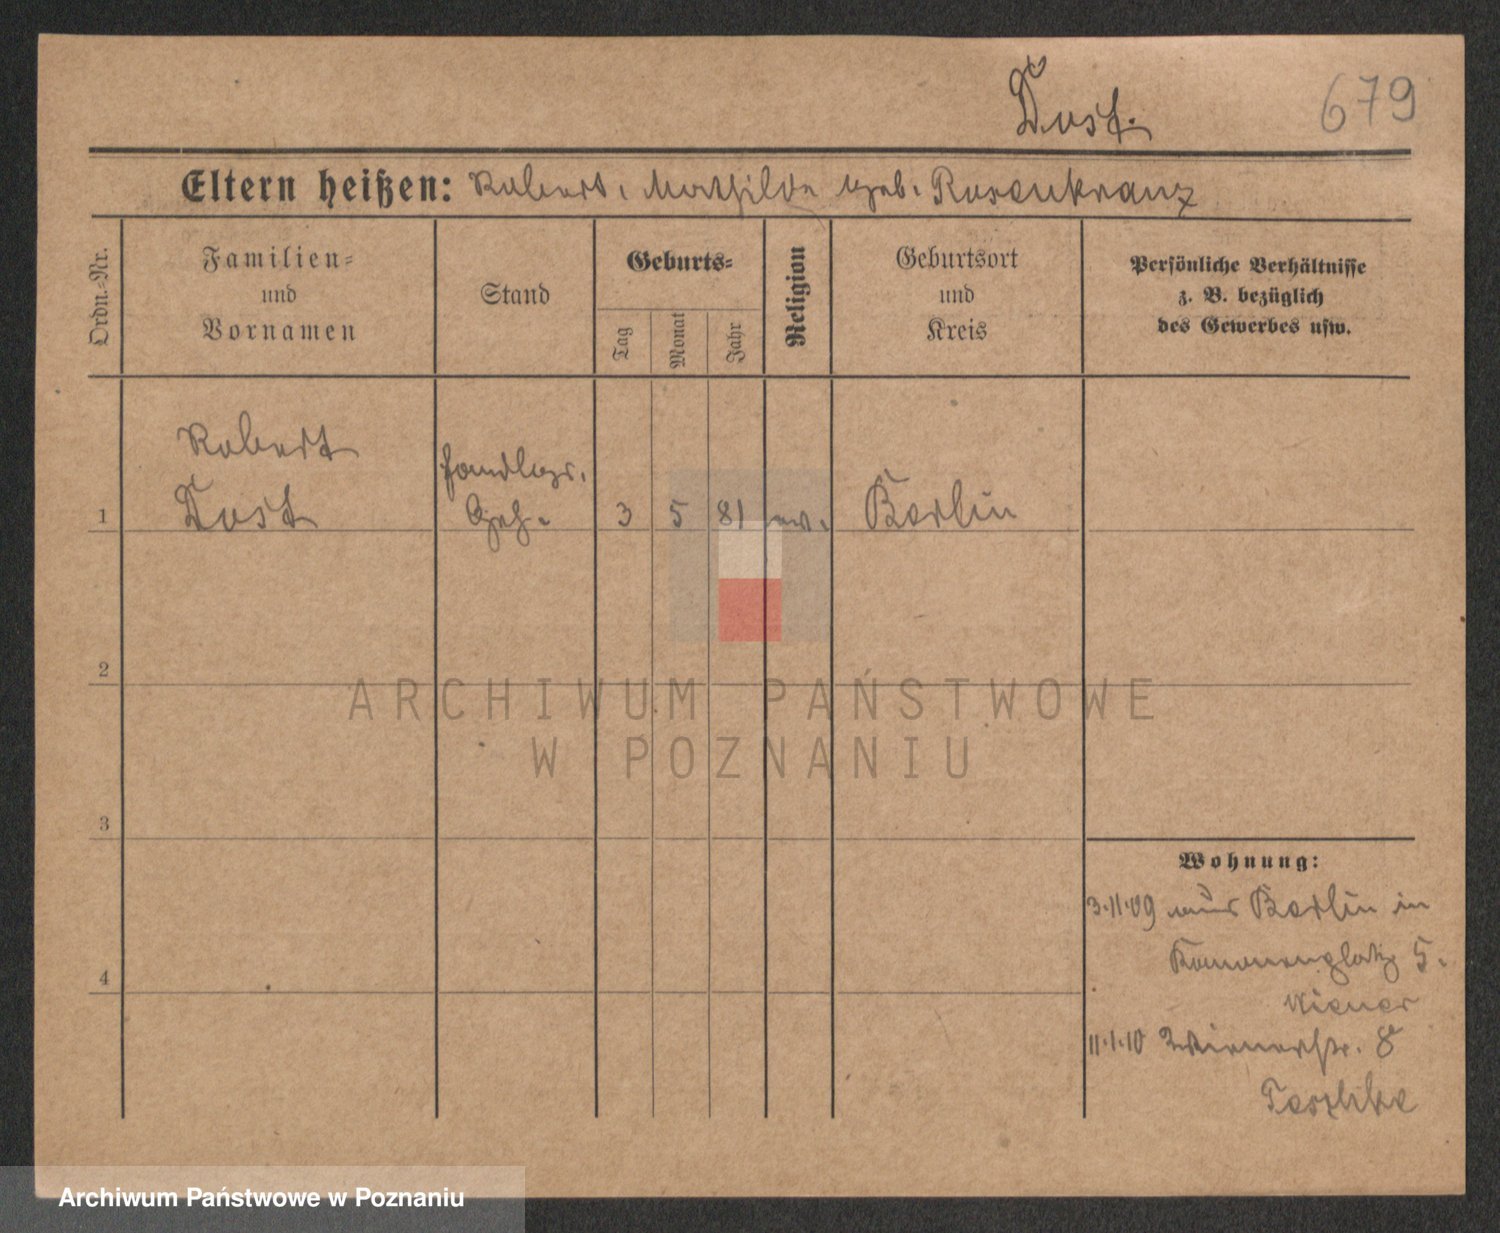 Dost.
679
Eltern heißen: Robert, Mathilde geb. Rosenkranz
Ordn.-Nr.
Familien-
und
Vornamen
Stand
Geburts-
Tag
Monat
Jahr
Religion
Geburtsort
und
Kreis
Persönliche Verhältnisse
z. B. bezüglich
des Gewerbes usw.
Robert
Dost
Handlgs.
Geh.
1
3
5
81
ev.
Berlin
2
3
4
Wohnung:
3.11.09 aus Berlin in
5.
Wiener
11.1.10 Wienerstr. 8
ARCHIWUM PAŃSTWOWE
W POZNANIU
Archiwum Państwowe w Poznaniu